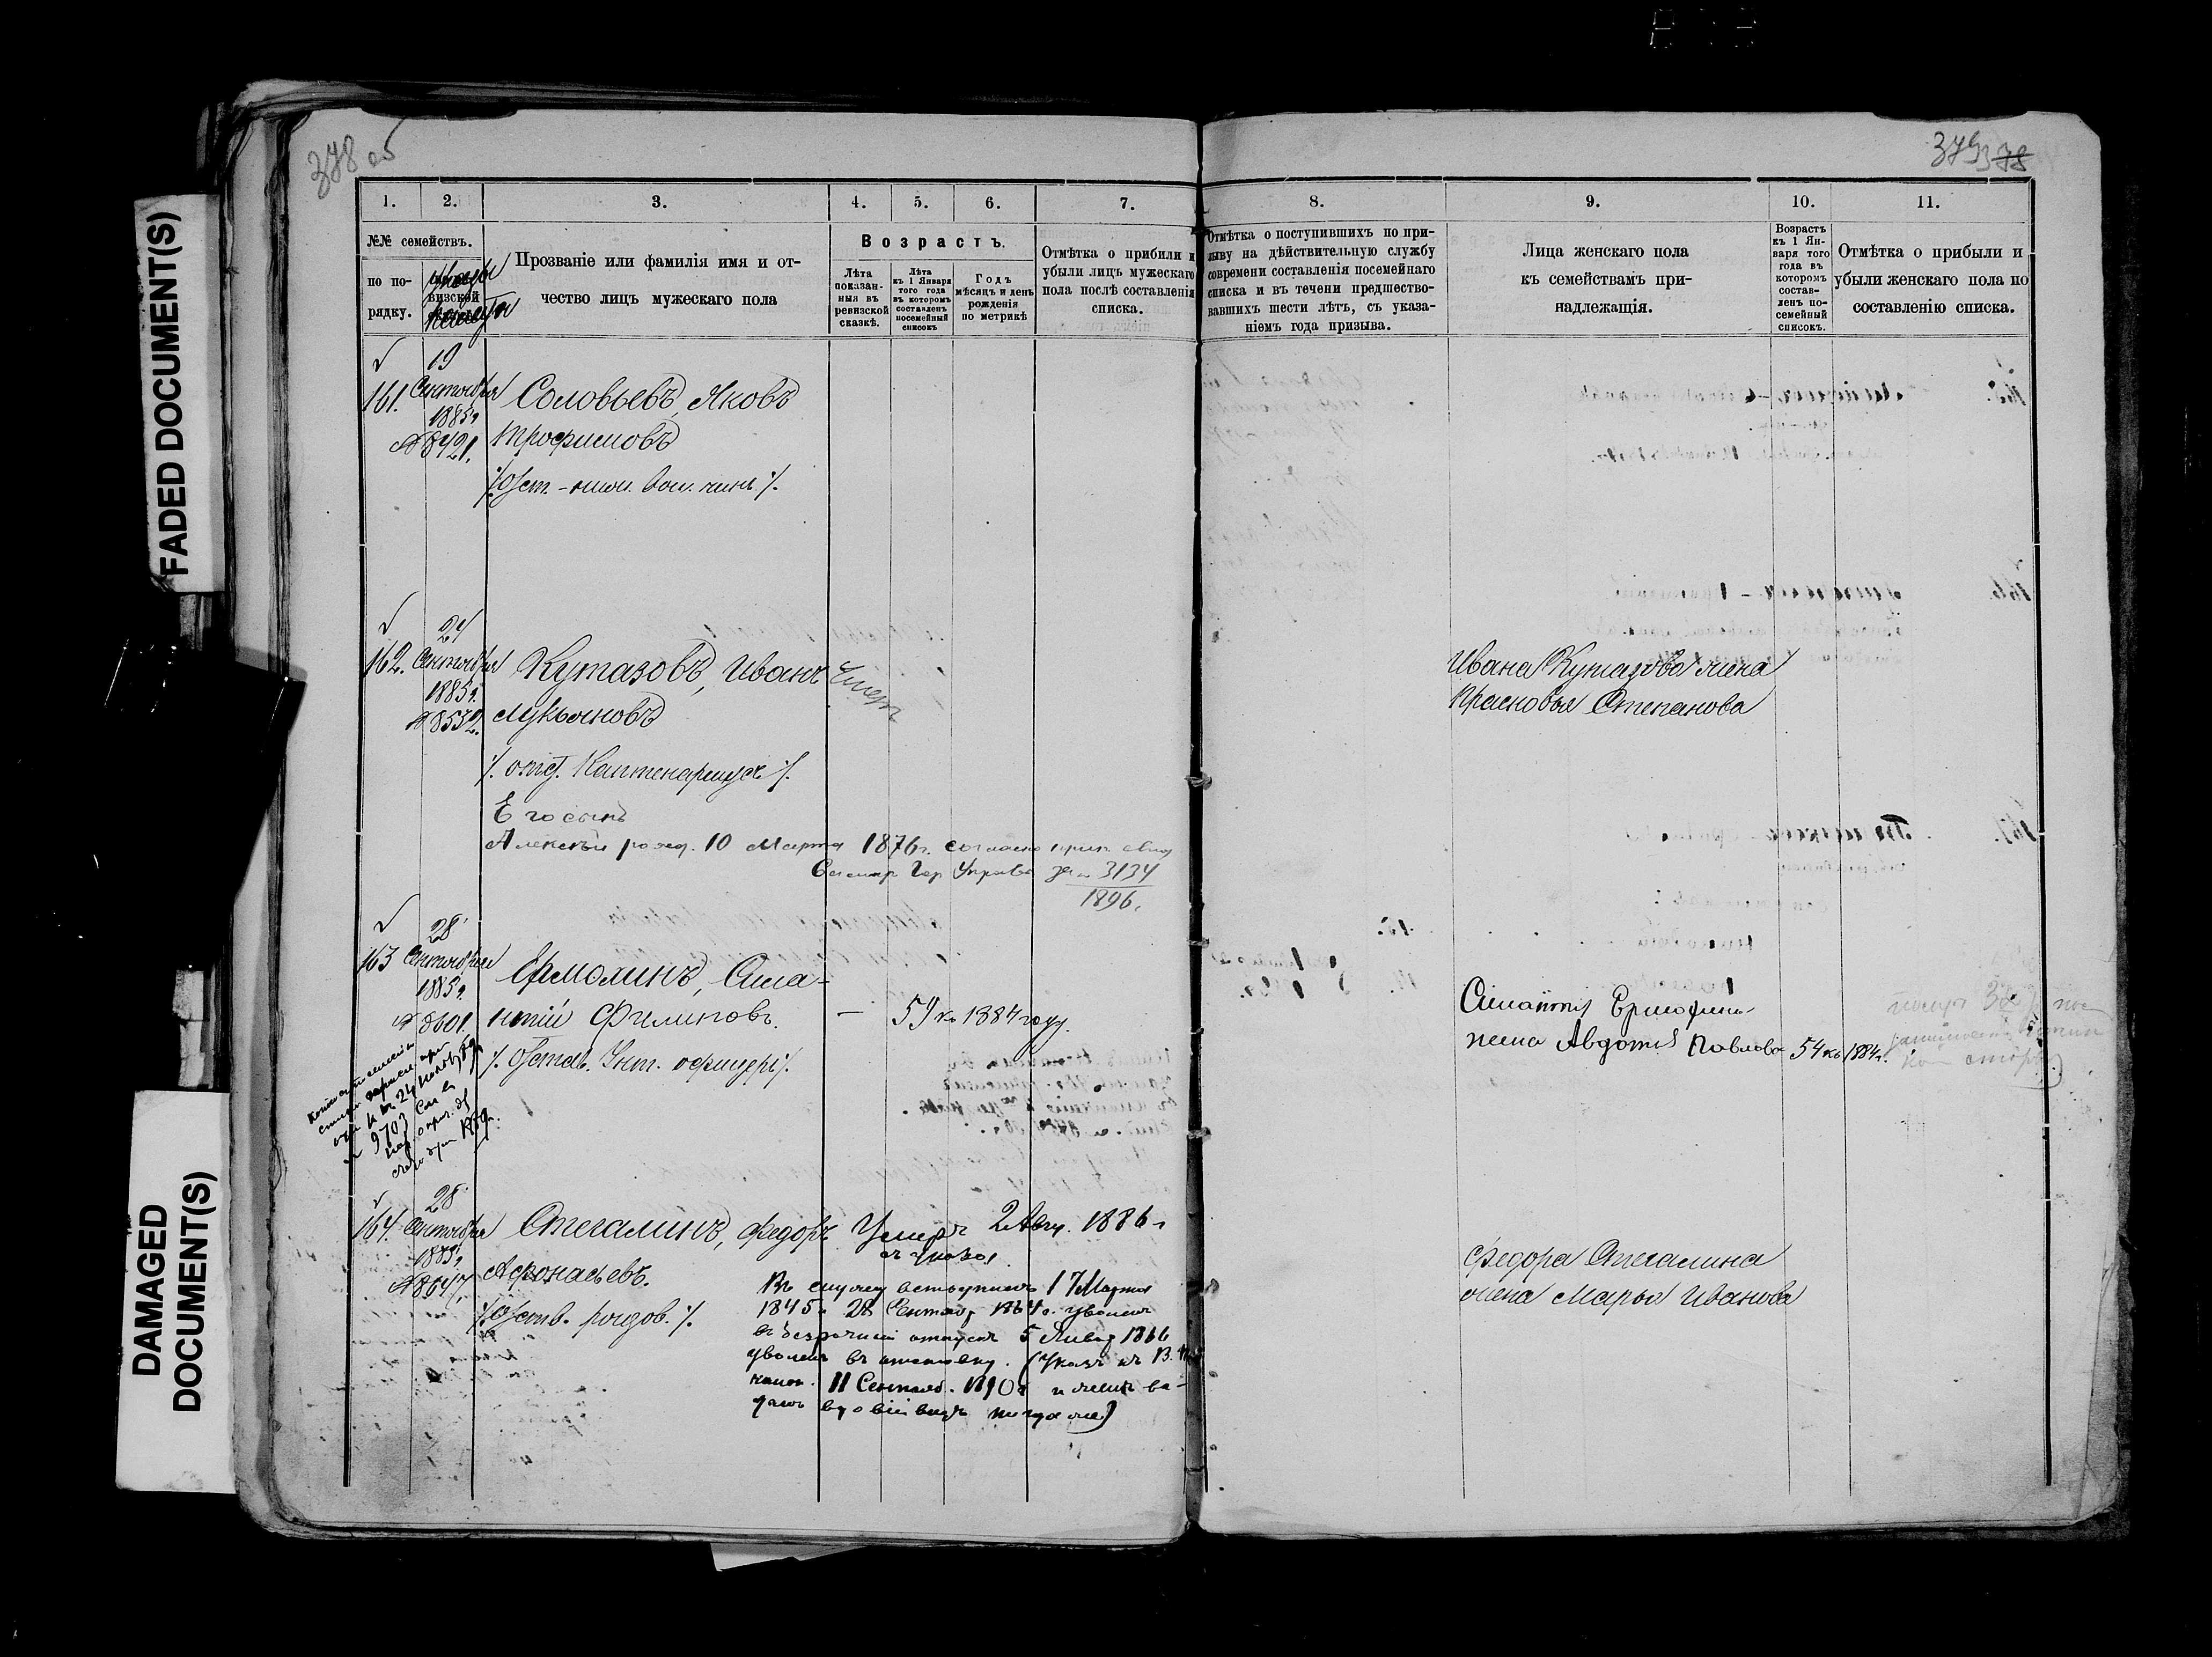 FADED DOCUMENT(S)
DAMAGED
DOCUMENT(S)
378 об
379 378
1. 2. 3. 4. 5. 6. 7.
№№ семействъ.
по по-
рядку.
Прозваніе или фамилія имя и от-
чество лицъ мужескаго пола
Возрастъ.
Лѣта
показан-
ныя въ
ревизской
сказкѣ.
Лѣта
къ 1 Января
того года
въ которомъ
составленъ
посемейный
списокъ
Годъ
мѣсяцъ и день
рожденія
по метрикѣ
Отмѣтка о прибыли и
убыли лицъ мужескаго
пола послѣ составленія
списка.
8. 9. 10. 11.
Отмѣтка о поступившихъ по при-
зыву на дѣйствительную службу
современи составленія посемейнаго
списка и въ течени предшество-
вавшихъ шести лѣтъ, съ указа-
ніемъ года призыва.
Лица женскаго пола
къ семействамъ при-
надлежащія.
Возрастъ
къ 1 Ян-
варя того
года въ
которомъ
состав-
ленъ по-
семейный
списокъ.
Отмѣтка о прибыли и
убыли женскаго пола по
составленію списка.
161. 19 Сентября 1885 г. № 8421.
Соловьевъ, Яковъ
Трофимовъ
162. 24 Сентября 1885 г. № 8532.
Кутазовъ, Иванъ
Лукьяновъ
/. отст. Каптенармусъ /.
Его сынъ
Алексѣй рожд. 10 Марта 1876 г. согласно
Гор Управы за № 3134
1896.
Ивана Кутазова жена
Прасковья Степанова
163 28 Сентября 1885 г. № 8601.
Ермолинъ, Сила-
нтій Филиповъ. — 59 къ 1884 году.
/. Отстав. Унт. офицеръ /.
Жена Авдотья Павлова 54 къ 1884 г.
164. 28 Сентября 1885 г. № 8647.
Стегалинъ, Федоръ Умеръ 2 Авг. 1886 г
Афонасьевъ.
/. Отстав. рядов. /.
Въ службу вступилъ 17 Марта
1845 г. 28 Сентяб 1864 г. уволенъ
въ безсрочный отпускъ 5 Январ 1866
уволенъ въ отставку.
11 Сентяб. 1890 г
Федора Стегалина
жена Марья Иванова